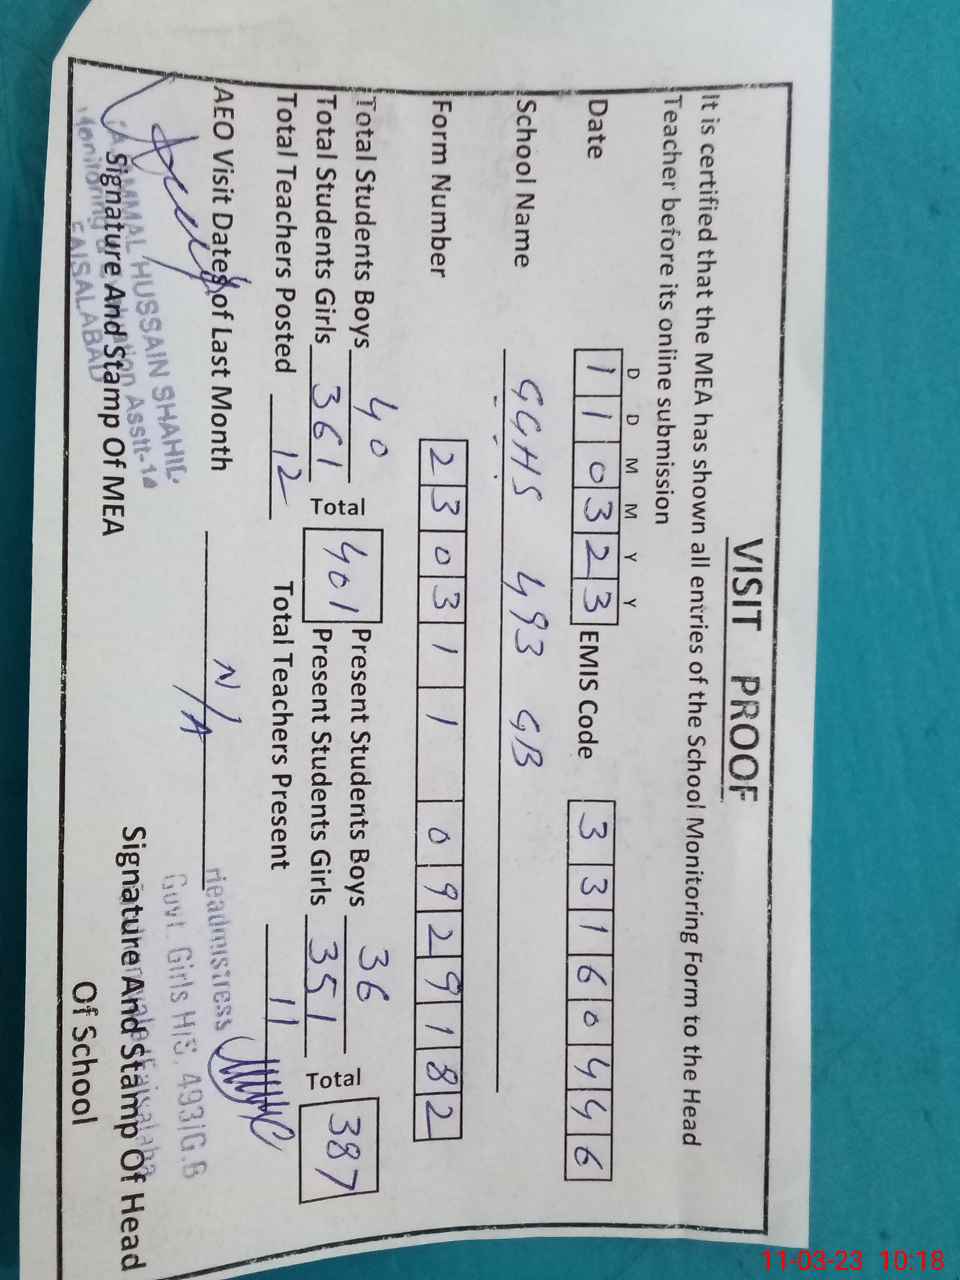 VISIT PROOF
It is certified that the MEA has shown all entries of the School Monitoring Form to the Head
Teacher before its online submission
D D M M Y Y
Date 1 1 0 3 2 3 EMIS Code 3 3 1 6 0 4 4 6
School Name GGHS 493 GB
Form Number 2 3 0 3 1 1 0 9 2 9 1 8 2
Total Students Boys 40 Present Students Boys 36
Total Students Girls 361 Total 401 Present Students Girls 351 Total 387
Total Teachers Posted 12 Total Teachers Present 11
AEO Visit Dates of Last Month N/A
Headmistress
Govt. Girls H/S, 493/G.B
HUSSAIN SHAHID
Asstt-14
FAISALABAD
Signature And Stamp Of MEA
Signature And Stamp Of Head
Of School
11-03-23 10:18